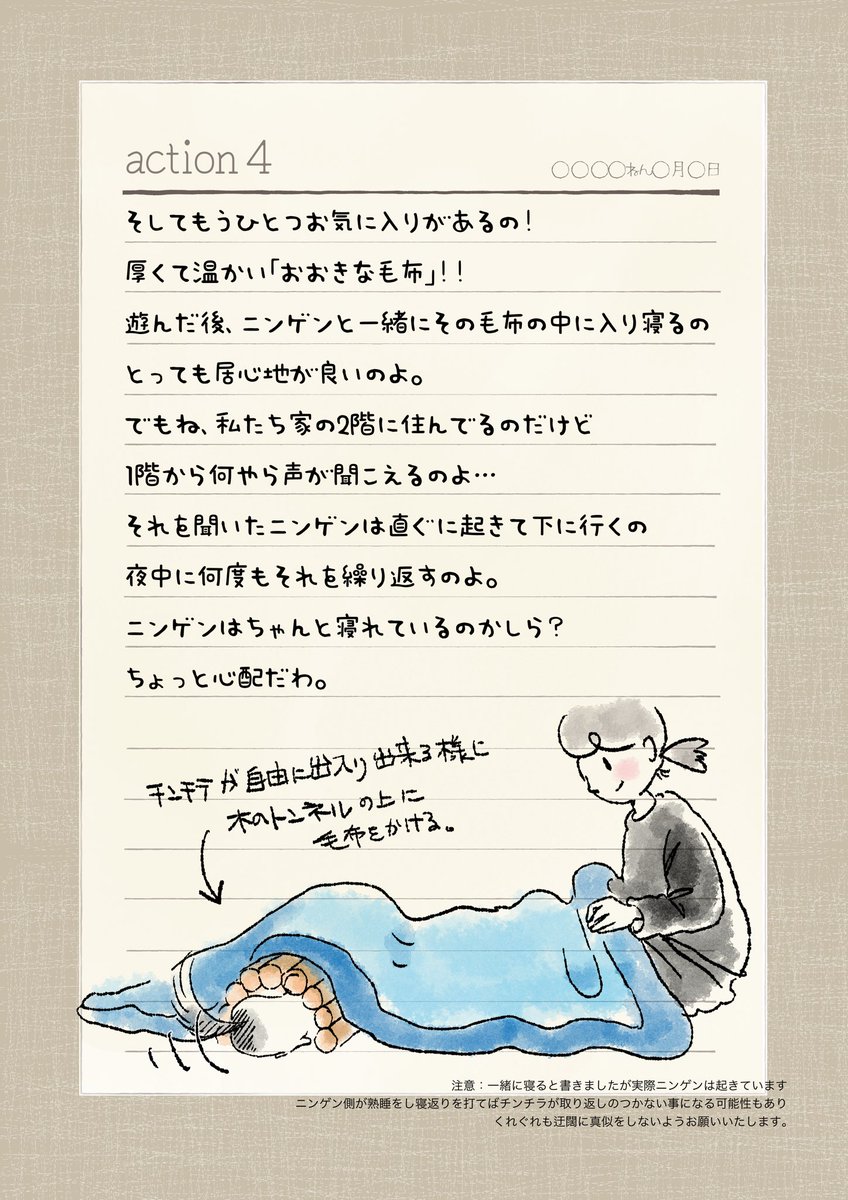 action 4
○○○○ねん○月○日
そしてもうひとつお気に入りがあるの!
厚くて温かい「おおきな毛布」!!
遊んだ後、ニンゲンと一緒にその毛布の中に入り寝るの
とっても居心地が良いのよ。
でもね、私たち家の2階に住んでるのだけど
1階から何やら声が聞こえるのよ…
それを聞いたニンゲンは直ぐに起きて下に行くの
夜中に何度もそれを繰り返すのよ。
ニンゲンはちゃんと寝れているのかしら?
ちょっと心配だわ。
チンチラが自由に出入り出来る様に
木のトンネルの上に
毛布をかける。
注意:一緒に寝ると書きましたが実際ニンゲンは起きています
ニンゲン側が熟睡をし寝返りを打てばチンチラが取り返しのつかない事になる可能性もあり
くれぐれも迂闊に真似をしないようお願いいたします。